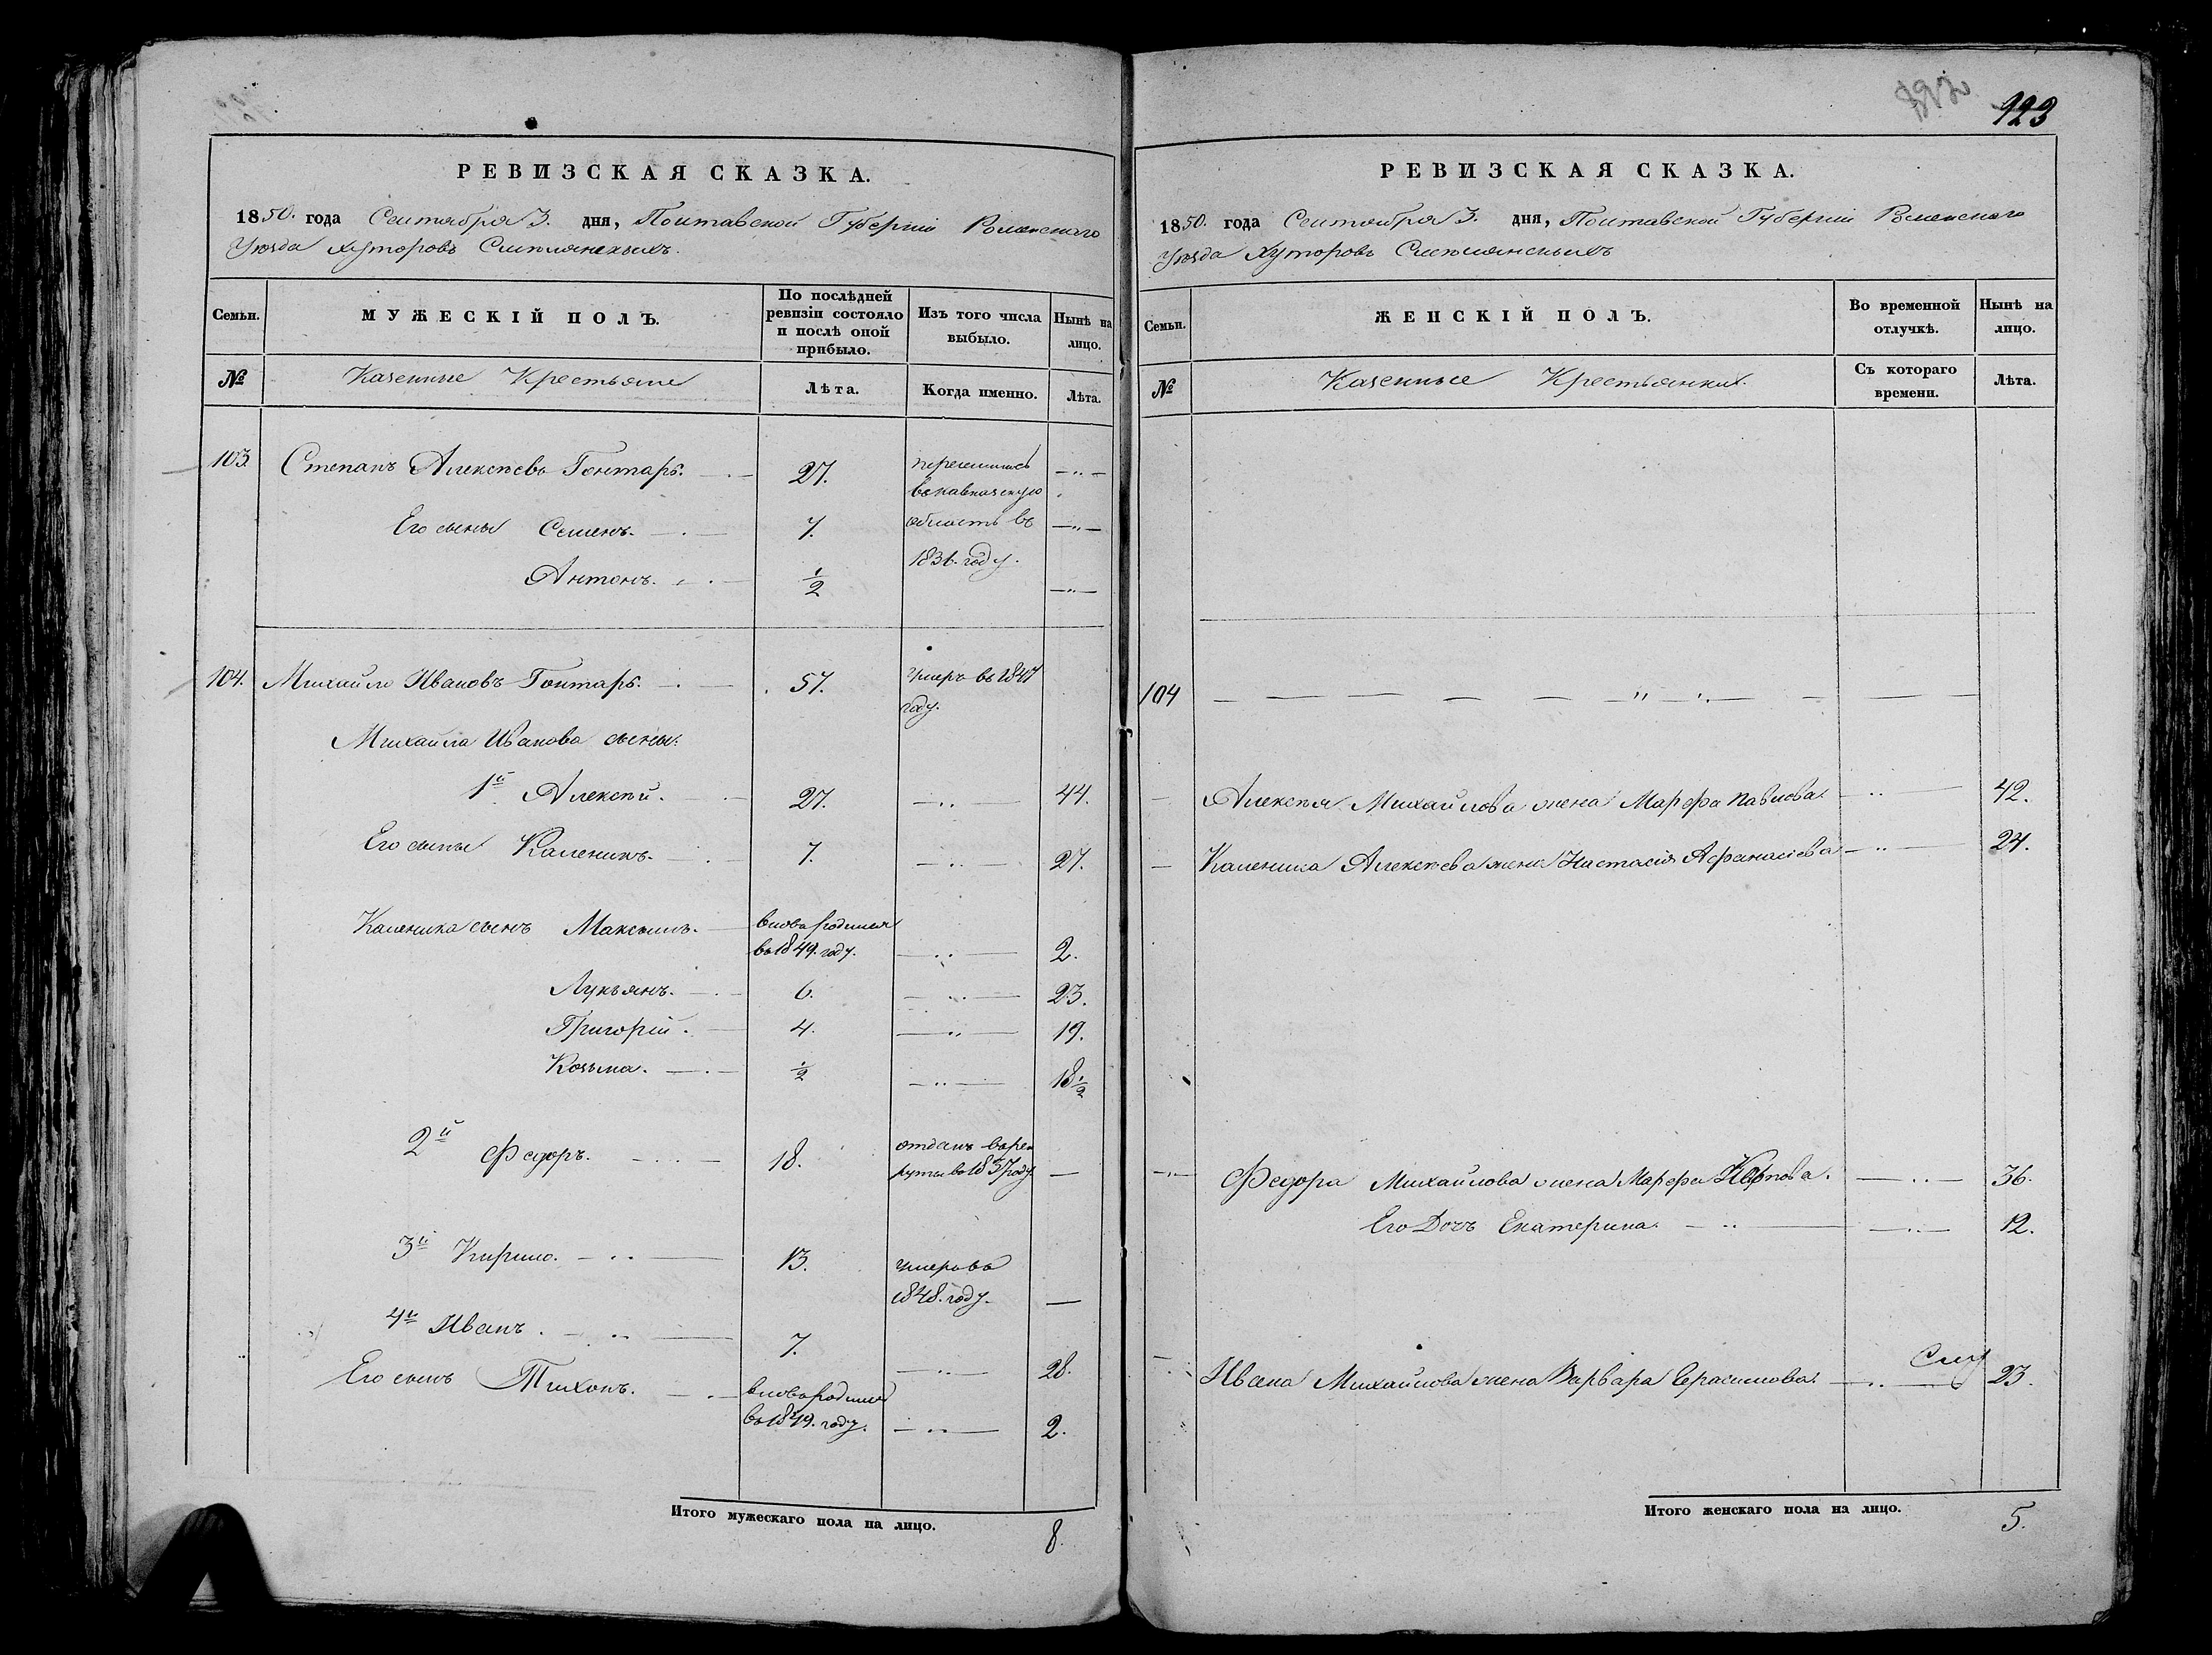 123
РЕВИЗСКАЯ СКАЗКА.
1850. года Сентября 3. дня, Полтавской Губерніи Роменского
Уезда Хуторовъ
МУЖЕСКІЙ ПОЛЪ.
Семьи.
По послѣдней ревизіи состояло и послѣ оной прибыло.
Изъ того числа выбыло.
Нынѣ на лицо.
№
Казенные Крестьяне
Лѣта.
Когда именно.
Лѣта.
103. Степанъ Алексѣевъ Гонтарь. 27. переселились —„—
въ кавказскую
Его сыны Семенъ. 7. область въ —„—
1831. году.
Антонъ. ½ —„—
104. Михайло Ивановъ Гонтарь. 57. умеръ въ 1847
году.
Михайла Иванова сыны:
1й Алексѣй. 27. —„— 44.
Его сыны Каленикъ. 7. —„— 27.
Каленика сынъ Максимъ. вновь родился
въ 1849. году. —„— 2.
Лукьянъ. 6. —„— 23.
Григорій. 4. —„— 19.
Козьма. ½ —„— 18½
2й Федоръ. 18. отданъ в рек
руты въ 1837 году —
3й Кирило. 13. умеръ въ
1848. году. —
4й Иванъ. 7. —„— 28.
Его сынъ Тихонъ. вновь родился
въ 1849. году. —„— 2.
Итого мужескаго пола на лицо. 8.
РЕВИЗСКАЯ СКАЗКА.
1850. года Сентября 3. дня, Полтавской Губерніи Роменского
Уезда Хуторовъ
Семьи.
ЖЕНСКІЙ ПОЛЪ.
Во временной отлучкѣ.
Нынѣ на лицо.
№
Казенные Крестьянки.
Съ котораго времени.
Лѣта.
104 — — — — — — „ — „ — — —
— Алексѣя Михайлова жена Марфа Павлова. —„— 42.
— Каленика Алексѣева жена Настасія Афанасіева —„— 24.
—„— Федора Михайлова жена Марфа Карпова. —„— 36.
Его Дочъ Екатерина. —„— 12.
— Ивана Михайлова жена Варвара Герасимова. —„— 23.
Итого женскаго пола на лицо. 5.